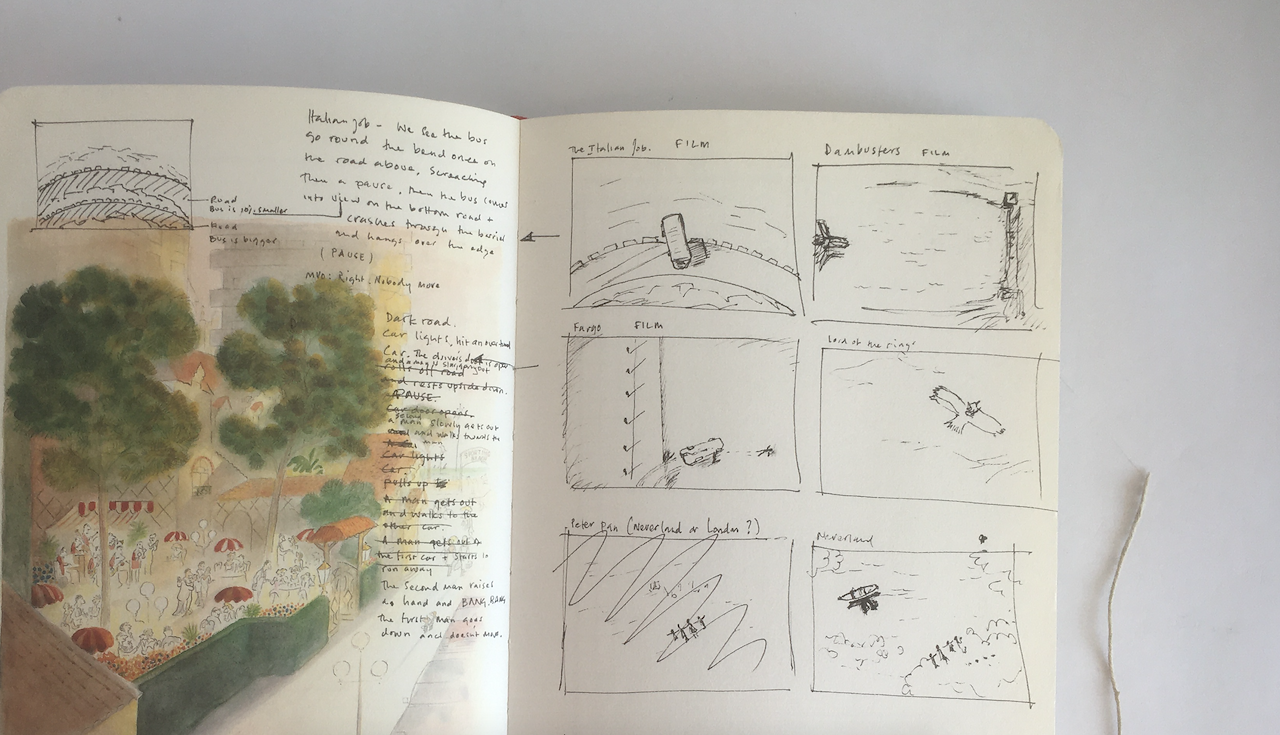 Italian Job - We see the bus
go round the bend once on
the road above, screaching
Then a pause, then the bus comes
into view on the bottom road +
crashes through the barrier
and hangs over the edge
(PAUSE)
Right. Nobody move
Road
Bus is 10% smaller
Road
Bus is bigger.
Dark road.
Car lights, hit an overturned
Car. The drivers door is open
and a man is
rolls off road
and rests upside down.
PAUSE.
Car door opens.
second
a man slowly gets out
and walks towards the
man
Car lights
Car.
Pulls up
A man gets out
and walks to the
other car.
A man gets out
the first car + starts to
run away
The second man raises
his hand and BANG, BANG
the first man goes
down and doesn't move.
The Italian Job. FILM
Dambusters FILM
Fargo FILM
Lord of the rings
Peter Pan (Neverland or London?)
Neverland